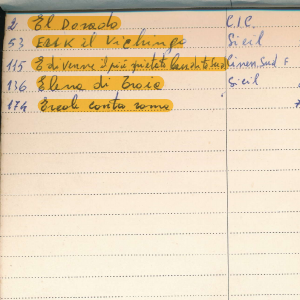 2 El Dorado C.I.C.
53 Erik il Vichingo Sicil
115 E divenne il più spietato bandito del Cinen. Sud
136 Elena di Troia Sicil
174 Ercole contro roma